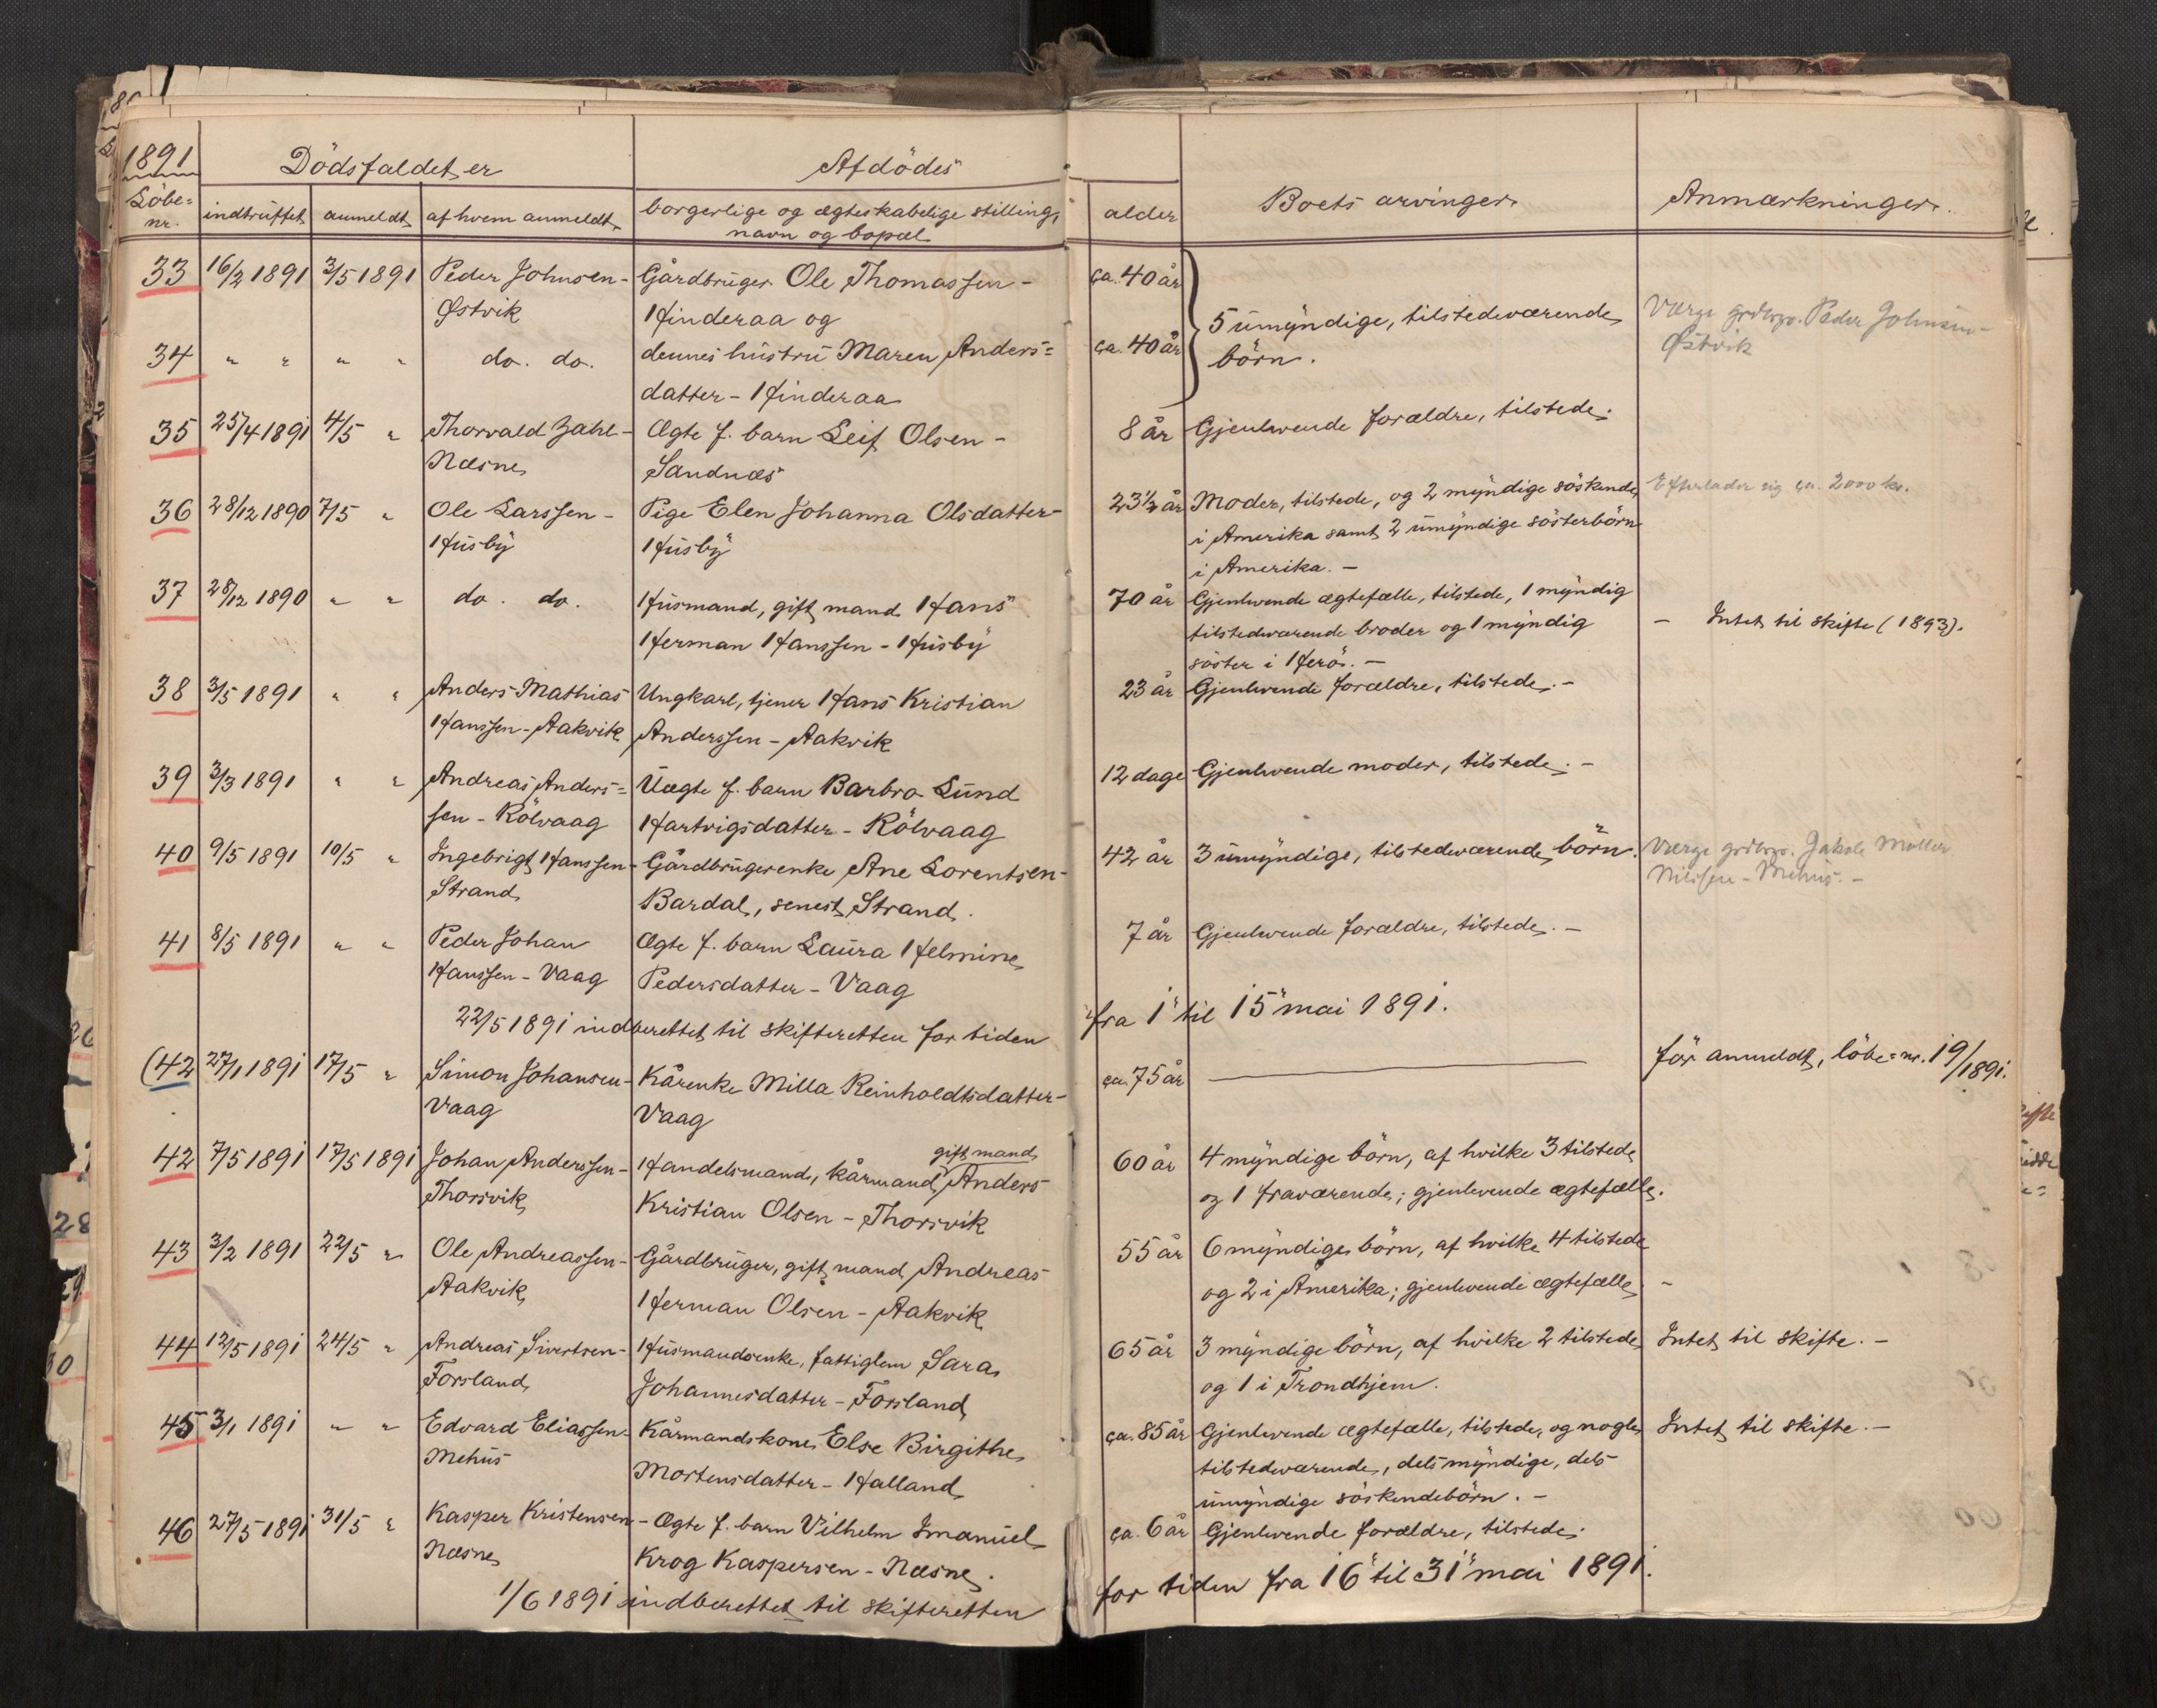 1891
Dödsfaldet er
Afdödes
Löbe=
nr.
indtruffet
anmeldt
af hvem anmeldt
borgerlige og ægteskabelige stilling,
navn og bopæl
alder
Boets arvinger
Anmærkninger.
33 16/2 1891 3/5 1891 Peder Johnsen- Gårdbruger Ole Thomassen- ça. 40 år
Østvik Hinderaa og 5 umyndige, tilstedeværende Værge grdbrgr. Peder Johnsen-
34 " " " " do. do. dennes hustru Maren Anders= ça. 40 år börn. Østvik
datter - Hinderaa
35 25/4 1891 4/5 " Thorvald Zahl- Ægte f. barn Leif Olsen- 8 år Gjenlevende forældre, tilstede.
Næsne Sandnæs
36 28/12 1890 7/5 " Ole Larssen- Pige Elen Johanna Olsdatter- 23½ år Moder, tilstede, og 2 myndige söskende Efterlader sig ça. 2000 kr.
Husby Husby i Amerika samt 2 umyndige sösterbörn
i Amerika. -
37 28/12 1890 " " do. do. Husmand, gift mand Hans 70 år Gjenlevende ægtefælle, tilstede, 1 myndig
Herman Hanssen - Husby tilstedeværende broder og 1 myndig - Intet til skifte (1893).
söster i Herö. -
38 3/5 1891 " " Anders Mathias Ungkarl, tjener Hans Kristian 23 år Gjenlevende forældre, tilstede. -
Hanssen - Aakvik Anderssen - Aakvik
39 3/3 1891 " " Andreas Anders= Uægte f. barn Barbro Lund 12 dage Gjenlevende moder, tilstede. -
sen - Rölvaag Hartvigsdatter - Rölvaag
40 9/5 1891 10/5 " Ingebrigt Hanssen- Gårdbrugerenke Ane Lorentsen- 42 år 3 umyndige, tilstedeværende börn. Værge grdbrgr. Jakob Möller
Strand Bardal, senest Strand. Nilssen - Mehus. -
41 8/5 1891 " " Peder Johan Ægte f. barn Laura Helmine 7 år Gjenlevende forældre, tilstede. -
Hanssen - Vaag Pedersdatter - Vaag
22/5 1891 indberettet til skifteretten for tiden fra 1" til 15" mai 1891.
(42 27/1 1891 17/5 " Simon Johansen- Kårenke Milla Reinholdtsdatter- ça. 75 år för anmeldt, löbe=nr. 19/1891.
Vaag Vaag
gift mand
42 7/5 1891 17/5 1891 Johan Anderssen- Handelsmand, kårmand, Anders 60 år 4 myndige börn, af hvilke 3 tilstede
Thorsvik Kristian Olsen - Thorsvik og 1 fraværende; gjenlevende ægtefælle.
43 3/2 1891 22/5 " Ole Andreassen- Gårdbruger, gift mand Andreas 55 år 6 myndige börn, af hvilke 4 tilstede
Aakvik Herman Olsen - Aakvik og 2 i Amerika; gjenlevende ægtefælle. -
44 12/5 1891 24/5 " Andreas Sivertsen- Husmandsenke, fattiglem Sara 65 år 3 myndige börn, af hvilke 2 tilstede Intet til skifte. -
Forsland Johannesdatter - Forsland og 1 i Trondhjem.
45 3/1 1891 " " Edvard Eliassen- Kårmandskone Else Birgithe ça. 85 år Gjenlevende ægtefælle, tilstede, og nogle Intet til skifte. -
Mehus Mortensdatter - Halland tilstedeværende, dels myndige, dels
umyndige söskendebörn. -
46 27/5 1891 31/5 " Kasper Kristensen- Ægte f. barn Vilhelm Imanuel ça. 6 år Gjenlevende forældre, tilstede.
Næsne Krog Kaspersen - Næsne.
1/6 1891 indberettet til skifteretten for tiden fra 16" til 31" mai 1891.